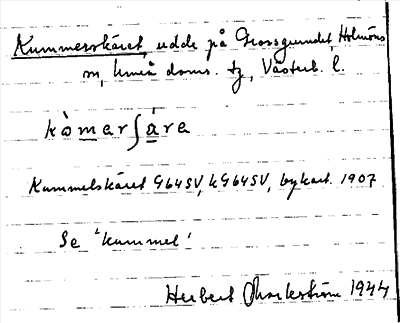 Kummerskäret, udde på Grossgrundet, Holmöns
sn, Umeå doms. tg, Västerb. l.
kòmerʃàre
Kummelskäret G64SV, kG64SV, bykart. 1907
Se 'kummel'
Herbert Markström 1944